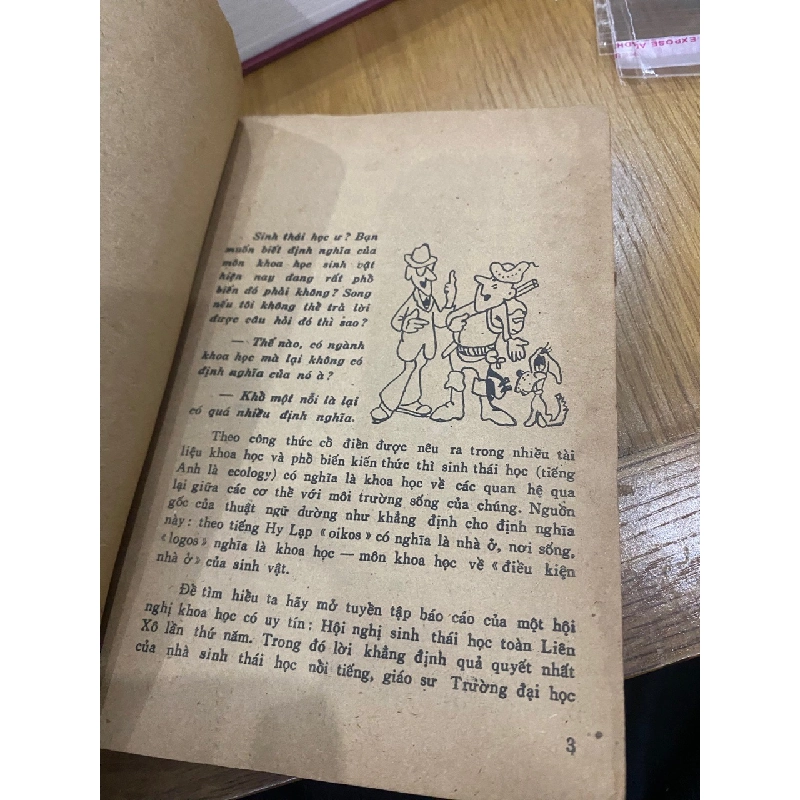 Sinh thái học ư? Bạn
muốn biết định nghĩa của
môn khoa học sinh vật
hiện nay đang rất phổ
biến đó phải không? Song
nếu tôi không thể trả lời
được câu hỏi đó thì sao?
— Thế nào, có ngành
khoa học mà lại không có
định nghĩa của nó à?
— Khổ một nỗi là lại
có quá nhiều định nghĩa.
Theo công thức cổ điển được nêu ra trong nhiều tài
liệu khoa học và phổ biến kiến thức thì sinh thái học (tiếng
Anh là ecology) có nghĩa là khoa học về các quan hệ qua
lại giữa các cơ thể với môi trường sống của chúng. Nguồn
gốc của thuật ngữ dường như khẳng định cho định nghĩa
này: theo tiếng Hy Lạp «oikos» có nghĩa là nhà ở, nơi sống,
«logos» nghĩa là khoa học — môn khoa học về «điều kiện
nhà ở» của sinh vật.
Để tìm hiểu ta hãy mở tuyển tập báo cáo của một hội
nghị khoa học có uy tín: Hội nghị sinh thái học toàn Liên
Xô lần thứ năm. Trong đó lời khẳng định quả quyết nhất
của nhà sinh thái học nổi tiếng, giáo sư Trường đại học
3